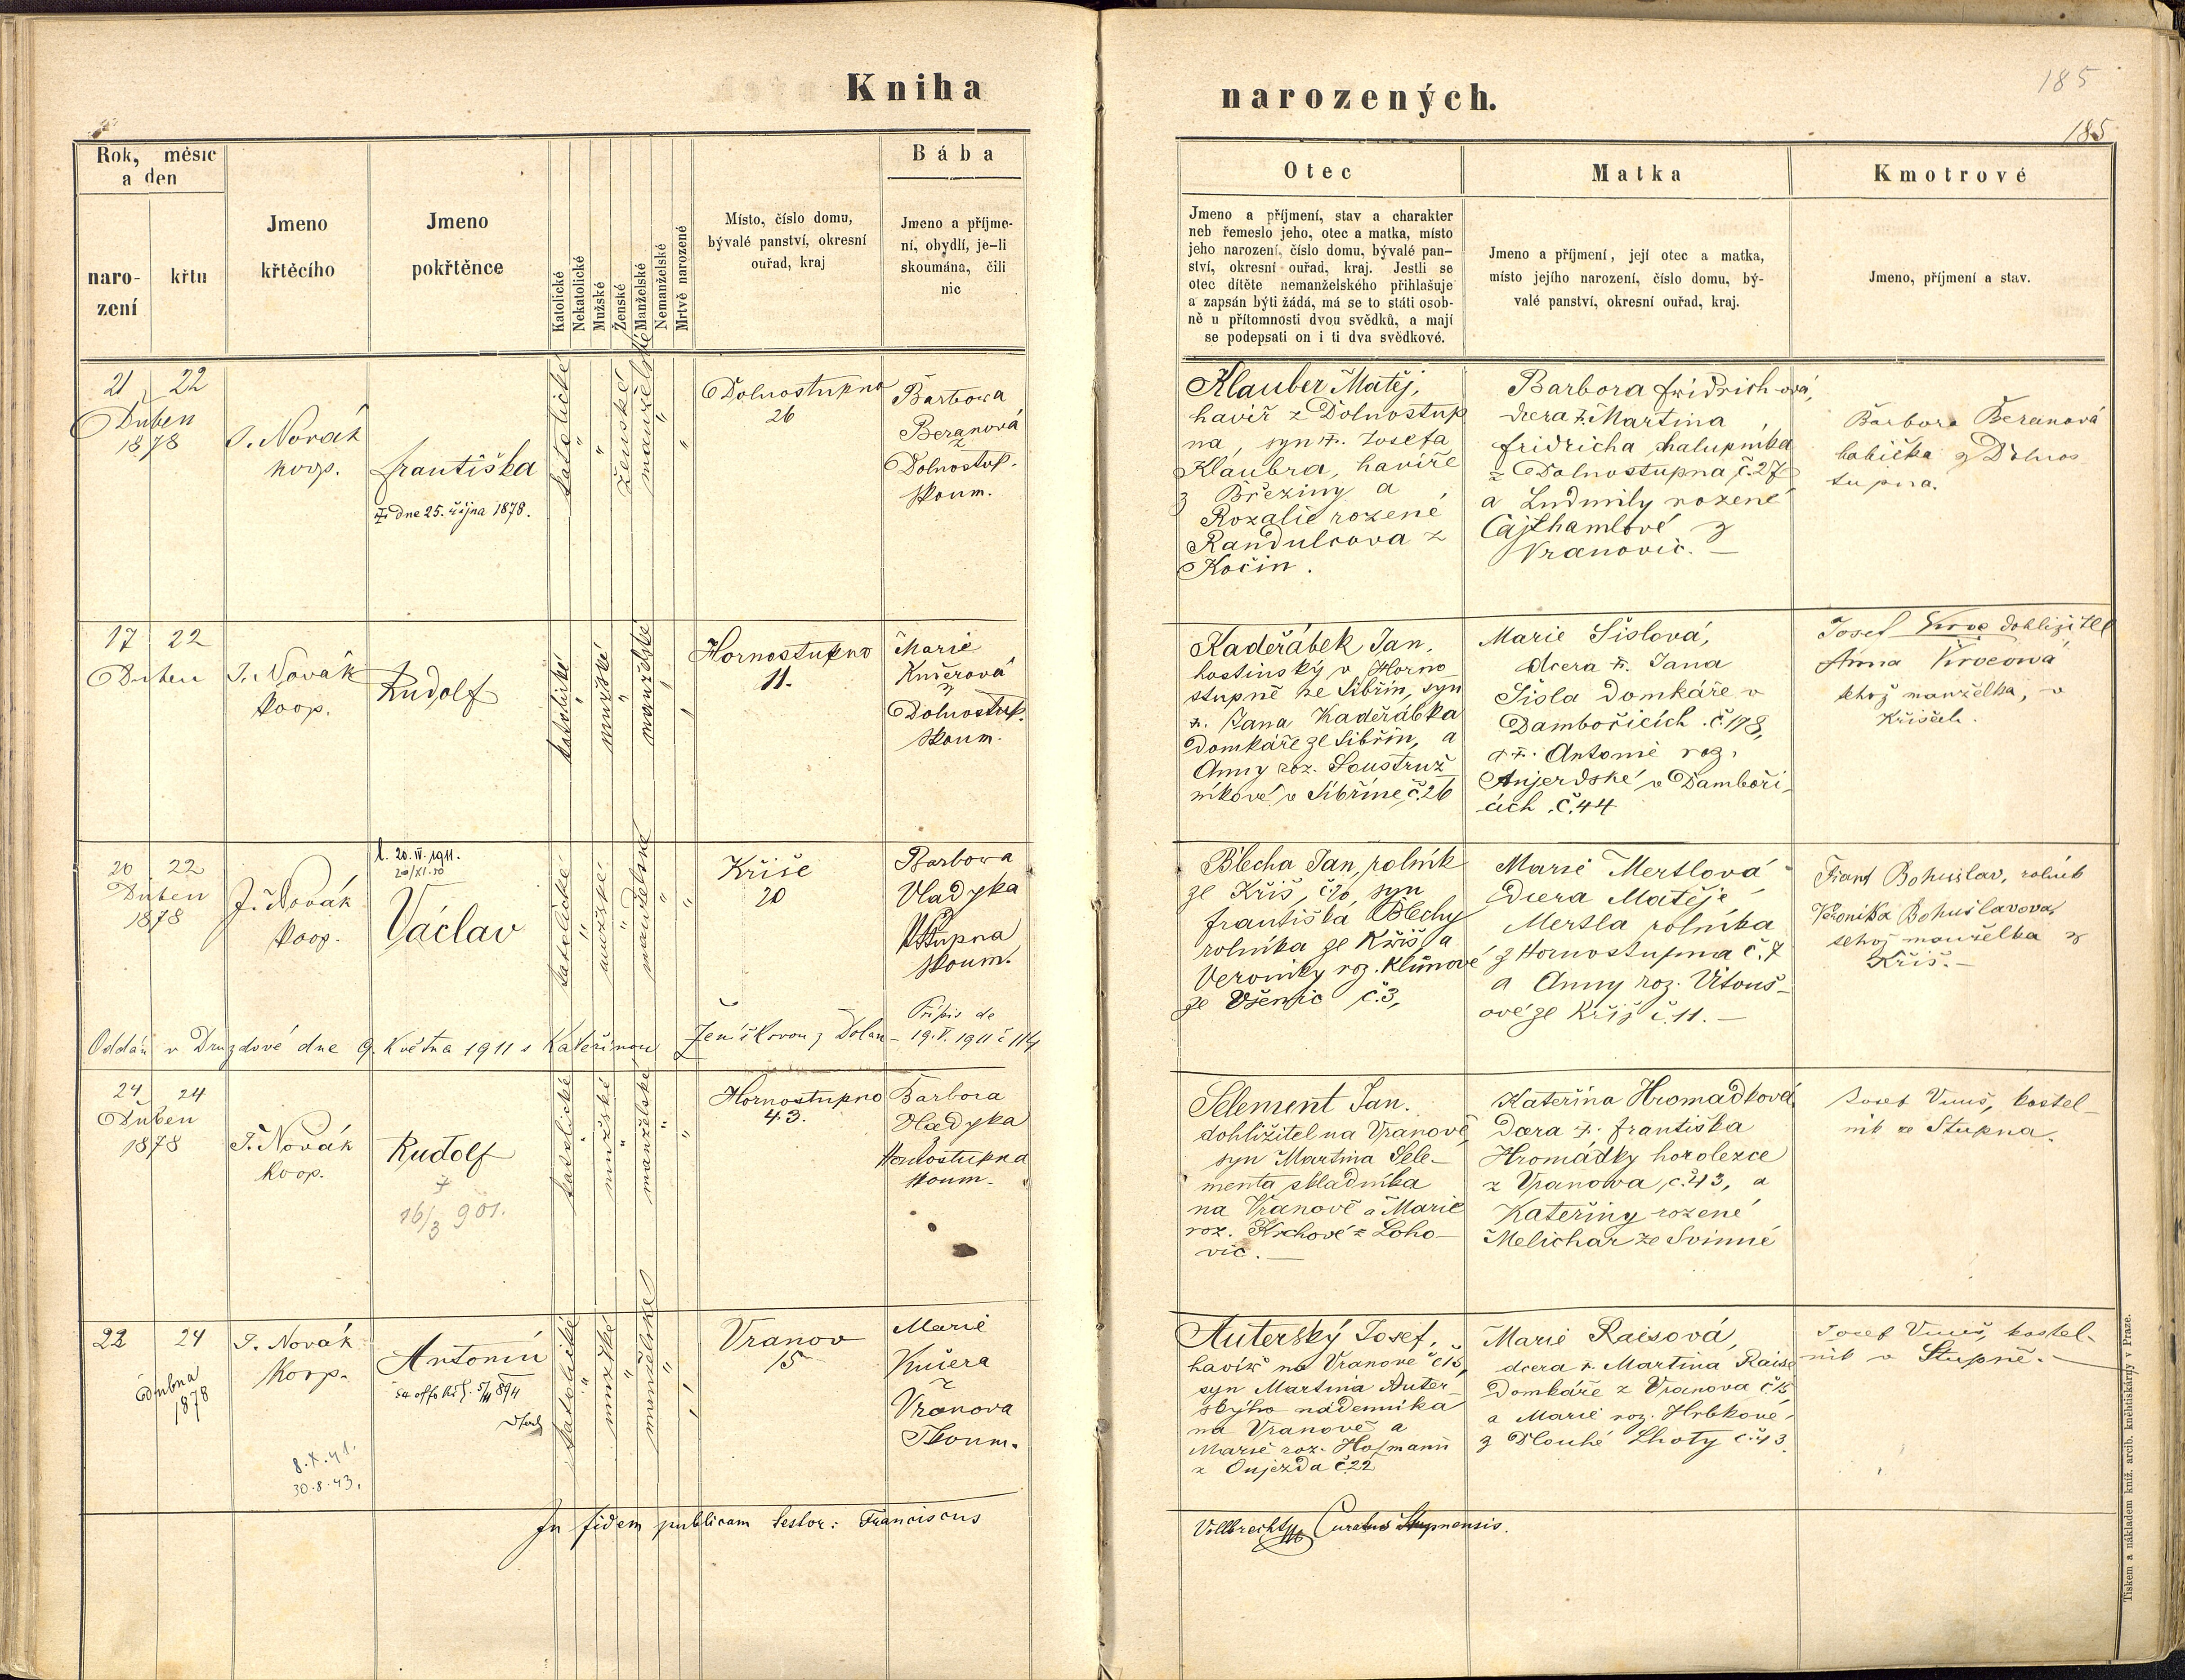 Kniha
narozených.
185
185
Rok, měsíc
a den
naro-
zení
křtu
Jmeno
křtěcího
Jmeno
pokřtěnce
Katolické
Nekatolické
Mužské
Ženské
Manželské
Nemanželské
Mrtvě narozené
Místo, číslo domu,
bývalé panství, okresní
ouřad, kraj
Bába
Jmeno a příjme-
ní, obydlí, je-li
skoumána, čili
nic
Otec
Jmeno a příjmení, stav a charakter
neb řemeslo jeho, otec a matka, místo
jeho narození, číslo domu, bývalé pan-
ství, okresní ouřad, kraj. Jestli se
otec dítěte nemanželského přihlašuje
a zapsán býti žádá, má se to státi osob-
ně u přítomnosti dvou svědků, a mají
se podepsati on i ti dva svědkové.
Matka
Jmeno a příjmení, její otec a matka,
místo jejího narození, číslo domu, bý-
valé panství, okresní ouřad, kraj.
Kmotrové
Jmeno, příjmení a stav.
21 22
Duben
1878
J. Novák
koop.
Františka
dne 25. října 1878.
katolické
ženské
manželské
Dolnostupno
26
Barbora
Beranová
z
Dolnostup.
skoum.
Klauber Matěj,
havíř z Dolnostup
na, syn †. Josefa
Klaubra, havíře
z Březiny a
Rozalie rozené
Randulsova z
Kočin.
Barbora Fridrichová,
dcera †. Martina
Fridricha chalupníka
z Dolnostupna č. 27
a Ludmily rozené
Cajthamlové z
Vranovic. —
Barbora Beranová
babička z Dolnos
tupna.
17 22
Duben
J. Novák
koop.
Rudolf
katolické
mužské
manželské
Hornostupno
11.
Marie
Kučerová
z
Dolnostup.
skoum.
Kadeřábek Jan,
hostinský v Horno
stupně ze Sibřin, syn
†. Jana Kadeřábka
domkáře ze Sibřin, a
Anny roz. Soustruž
níkové v Sibřině č. 26
Marie Šislová,
dcera †. Jana
Šisla domkáře v
Dambořicích č. 198,
a †. Antonie roz.
Anjerdské v Damboři-
cích č. 44
Josef Kroc dohližitel
Anna Krocová
tehož manželka, v
Křiších.
20 22
Duben
1878
J. Novák
koop.
l. 20. IV. 1911.
Václav
katolické
mužské
manželské
Kříše
20
Barbora
Vladyka
Stupna
skoum.
Blecha Jan, rolník
ze Kříš, č. 20, syn
Františka Blechy
rolníka ze Kříš, a
Veroniky roz. Klimové
ze Všenic č. 3,
Marie Mertlová
dcera Matěje
Mertla rolníka
z Hornostupna č. 7
a Anny roz. Vitouš-
ové ze Kříš č. 11. —
Frant Bohuslav, rolník
Veronika Bohuslavova,
tehož manželka z
Kříš. —
Oddán v Druzdové dne 9. Května 1911 s Kateřinou Ženíškovou z Dolan -
Přípis de
19. V. 1911 č 114
24 24
Duben
1878
J. Novák
koop.
Rudolf
†
16/3 901.
katolické
mužské
manželské
Hornostupno
43.
Barbora
Vladyka
Hornostupna
skoum.
Selement Jan.
dohližitel na Vranově,
syn Martina Sele-
menta skladníka
na Vranově a Marie
roz. Krchové z Loho-
vic. —
Kateřina Hromádková
dcera †. Františka
Hromádky horolezce
z Vranova, č. 43, a
Kateřiny rozené
Melichar ze Svinné
Josef Vuuš, kostel-
ník ze Stupna.
22 24
Dubna
1878
J. Novák
koop.
Antonín
8. X. 41.
30. 8. 43.
katolické
mužské
manželské
Vranov
15
Marie
Kučera
z
Vranova
Skoum.
Auterský Josef,
havíř na Vranově č 15,
syn Martina Auter-
ského nádenníka
na Vranově a
Marie roz. Hofmann
z Oujezda č. 22
Marie Raisová,
dcera †. Martina Raise
domkáře z Vranova č 15
a Marie roz. Hrbkové
z Dlouhé Lhoty č. 43.
Josef Vuuš, kostel-
ník v Stupně. —
In fidem publicam testor: Franciscus
Vollbrecht Curatus Stupnensis.
Tiskem a nákladem kníž. arcib. knihtiskárny v Praze.